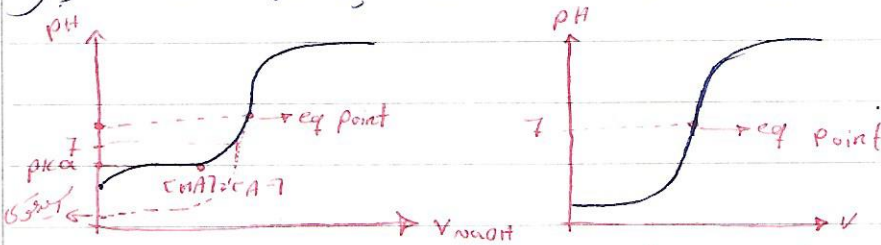 pH
7
pKa
eq point
[HA]=[A-]
VNaOH
pH
7
eq point
V